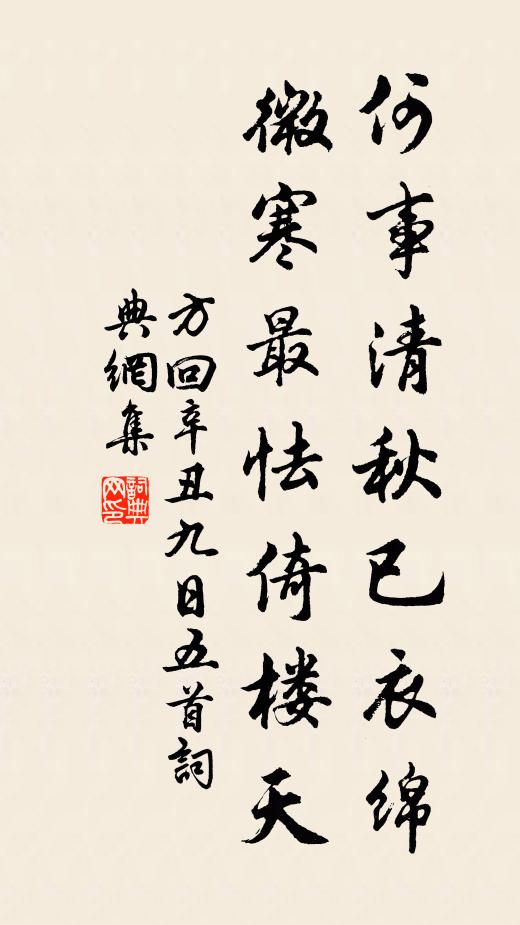 何事清秋已衣綿
微寒最怯倚楼天
方回辛丑九日五首詞
典網集
詞典網印